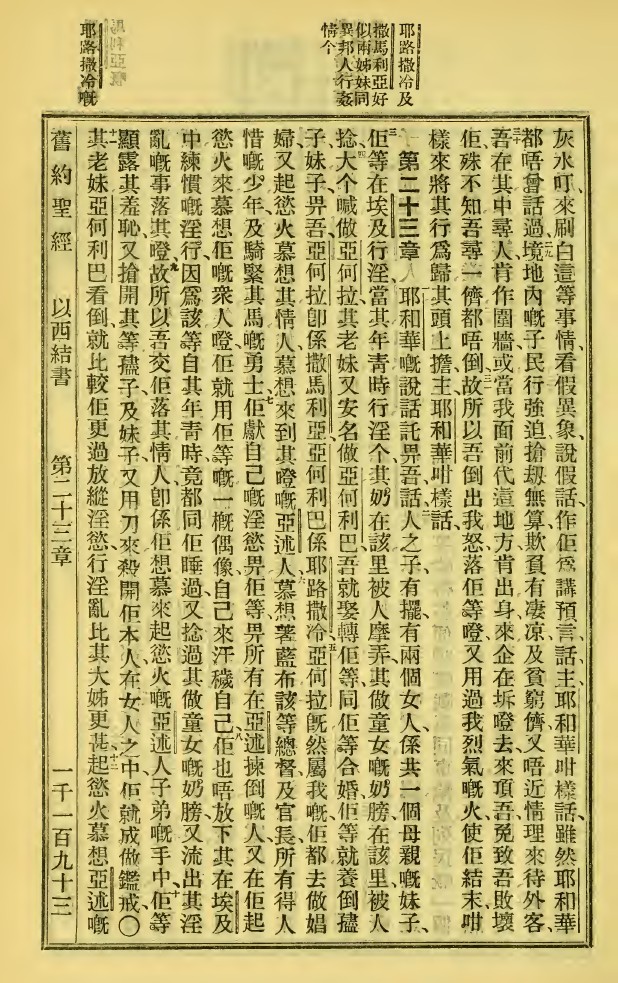 耶路撒冷及
撒馬利亞好
似兩姊妹同
異邦人行姦
情今
耶路撒冷嘅
灰水叮來刷白這等事情看假異象說假話作佢爲講預言話主耶和華咁樣話雖然耶和華
都唔曾話過二九境地內嘅子民行強迫搶刼無算欺負有凄凉及貧窮儕又唔近情理來待外客
三十吾在其中尋人肯作圍牆或當我面前代這地方肯出身來企在坼墱去來頂吾免致吾敗壞
佢殊不知吾尋一儕都唔倒三一故所以吾倒出我怒落佢等墱又用過我烈氣嘅火使佢結末咁
樣來將其行爲歸其頭上擔主耶和華咁樣話
第二十三章 一耶和華嘅說話託畀吾話二人之子有擺有兩個女人係共一個母親嘅妹子
三佢等在埃及行淫當其年靑時行淫个其奶在該里被人摩弄其做童女嘅奶膀在該里被人
捻四大个喊做亞何拉其老妹又安名做亞何利巴吾就娶轉佢等同佢等合婚佢等就養倒孻
子妹子畀吾亞何拉卽係撒馬利亞亞何利巴係耶路撒冷五亞何拉旣然屬我嘅佢都去做娼
婦又起慾火慕想其情人慕想來到其墱嘅亞述人六慕想著藍布該等總督及官長所有得人
惜嘅少年及騎緊其馬嘅勇士七佢獻自己嘅淫慾畀佢等畀所有在亞述揀倒嘅人又在佢起
慾火來慕想佢嘅衆人墱佢就用佢等嘅一槪偶像自己來汗穢自己八佢也唔放下其在埃及
中練慣嘅淫行因爲該等自其年靑時竟都同佢睡過又捻過其做童女嘅奶膀又流出其淫
亂嘅事落其墱九故所以吾交佢落其情人卽係佢想慕來起慾火嘅亞述人子弟嘅手中十佢等
顯露其羞恥又搶開其等孻子及妹子又用刀來殺開佢本人在女人之中佢就成做鑑戒〇
十一其老妹亞何利巴看倒就比較佢更過放縱淫慾行淫亂比其大姊更甚十二起慾火慕想亞述嘅
舊約聖經 以西結書 第二十三章 一千一百九十三